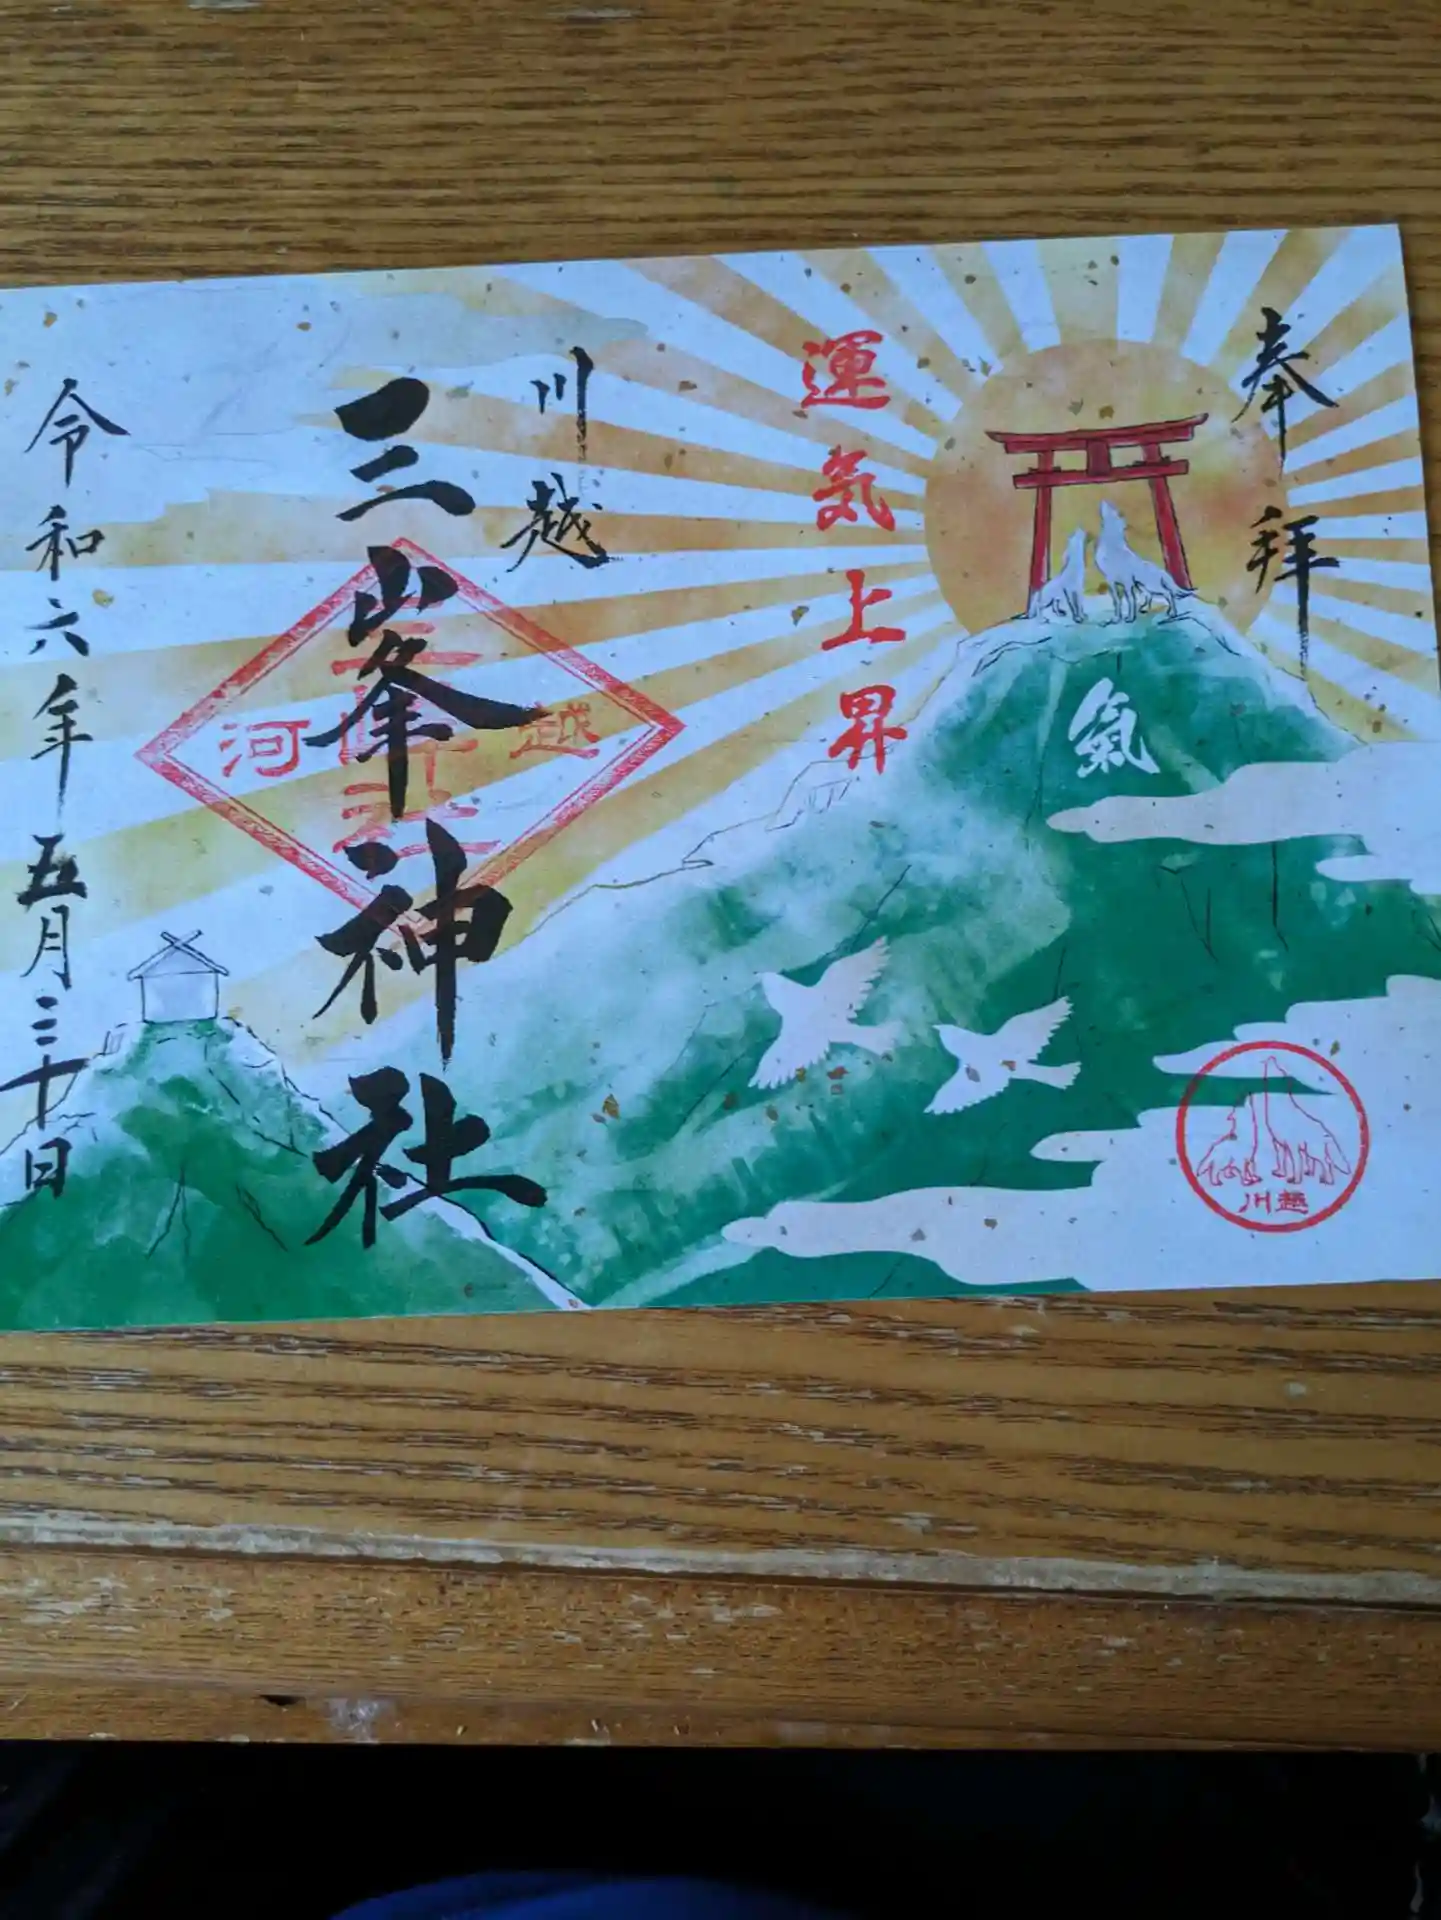 奉拝
氣
運気上昇
川越
三峯神社
三峯神社
河越
令和六年五月三十日
川越